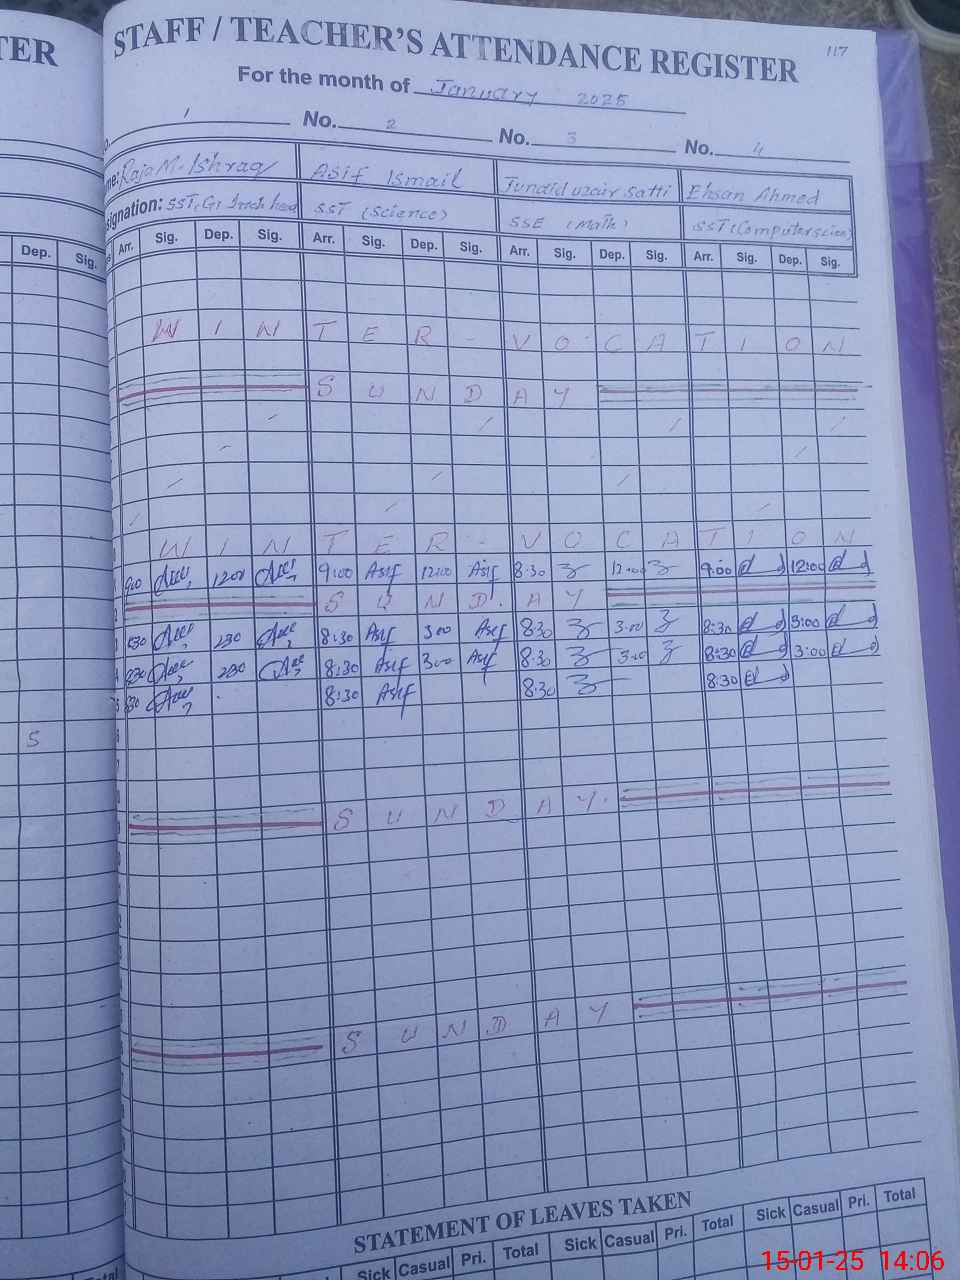 TER
STAFF / TEACHER'S ATTENDANCE REGISTER 117
For the month of January 2025
1 No. 2 No. 3 No. 4
me: Raja M. Ishraq Asif Ismail Junaid uzair Satti Ehsan Ahmed
signation: SST, G, head SST (Science) SSE (Math) SST (Computer scien)
Dep. Sig. Arr. Sig. Dep. Sig. Arr. Sig. Dep. Sig. Arr. Sig. Dep. Sig. Arr. Sig. Dep. Sig.
W I N T E R - V O C A T I O N
S U N D A Y
W I N T E R - V O C A T I O N
900 1200 9:00 Asif 12:00 Asif 8:30 12:00 9:00 12:00
S U N D A Y
830 230 8:30 Asif 300 Asif 8:30 3:00 8:30 3:00
830 230 8:30 Asif 300 Asif 8:30 3:00 8:30 3:00
830 8:30 Asif 8:30 8:30
5
S U N D A Y
S U N D A Y
STATEMENT OF LEAVES TAKEN
Sick Casual Pri. Total Sick Casual Pri. Total Sick Casual Pri. Total
15-01-25 14:06